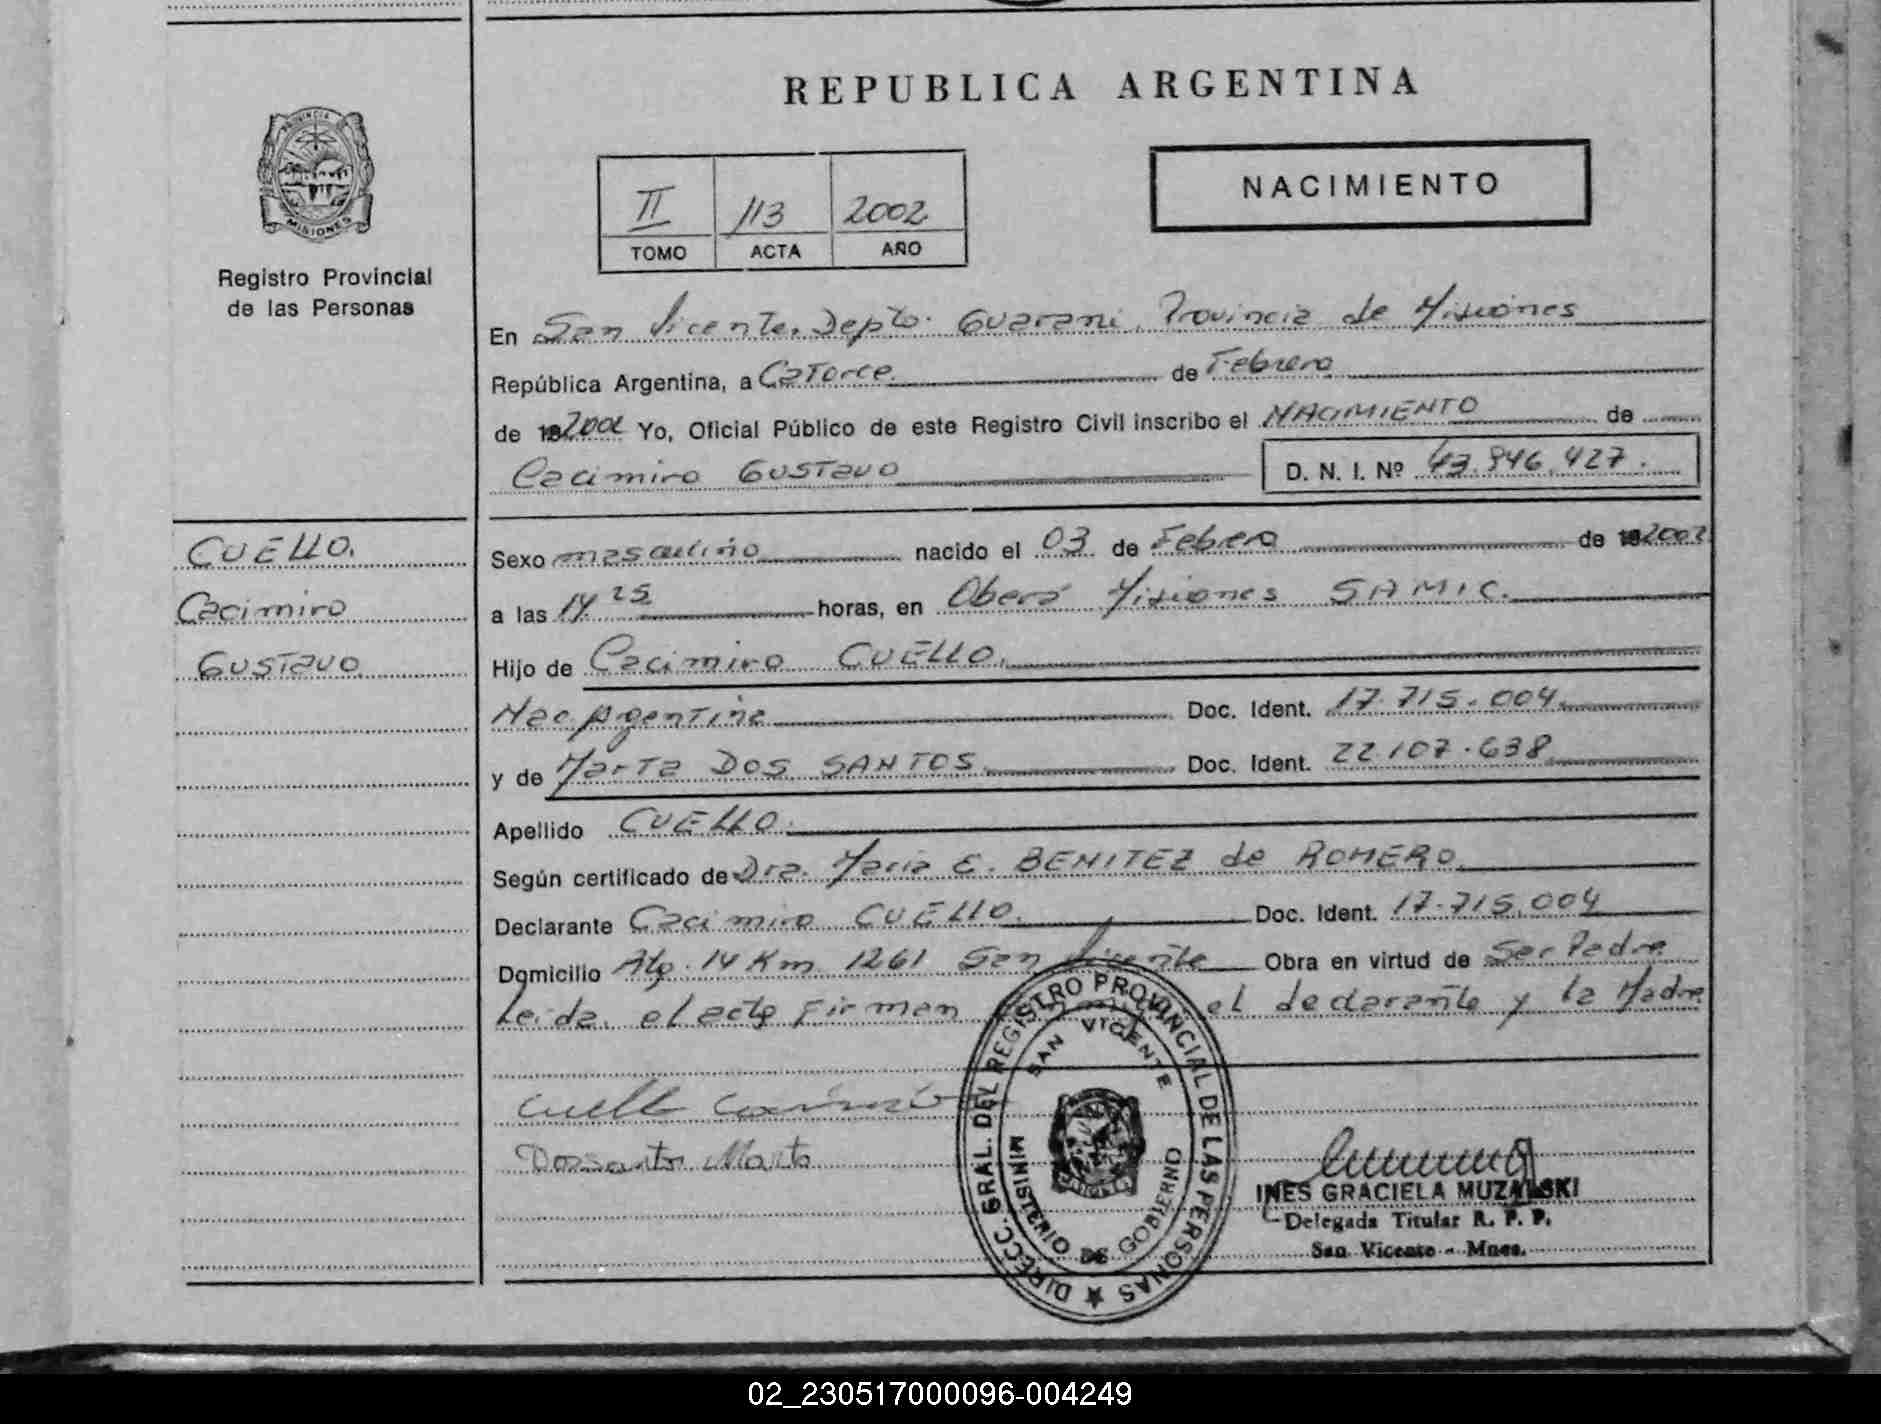 REPUBLICA ARGENTINA
PROVINCIA DE
MISIONES
Registro Provincial
de las Personas
II 113 2002
TOMO ACTA AÑO
NACIMIENTO
En San Vicente. Depto. Guarani. Provincia de Misiones
República Argentina, a Catorce de Febrero
de 19 2002 Yo, Oficial Público de este Registro Civil inscribo el NACIMIENTO de
Cacimiro Gustavo D. N. I. Nº 43.946.427.
CUELLO.
Cacimiro
Gustavo
Sexo masculino nacido el 03 de Febrero de 19 2002
a las 14 25 horas, en Oberá Misiones SAMIC.
Hijo de Cacimiro CUELLO.
Nac Argentina Doc. Ident. 17.715.004
y de Marta DOS SANTOS Doc. Ident. 22.107.638
Apellido CUELLO.
Según certificado de Dra. Maria E. BENITEZ de ROMERO.
Declarante Cacimiro CUELLO. Doc. Ident. 17.715.004
Domicilio 14 Km 1261 San Vicente Obra en virtud de Ser Padre
Leida el acta Firman el declarante y la Madre
Cuello Casimiro
Dossantos Marta
DIRECC. GRAL. DEL REGISTRO PROVINCIAL DE LAS PERSONAS
SAN VICENTE
MINISTERIO DE GOBIERNO
INES GRACIELA MUZALSKI
Delegada Titular R. P. P.
San Vicente - Mnes.
02_230517000096-004249